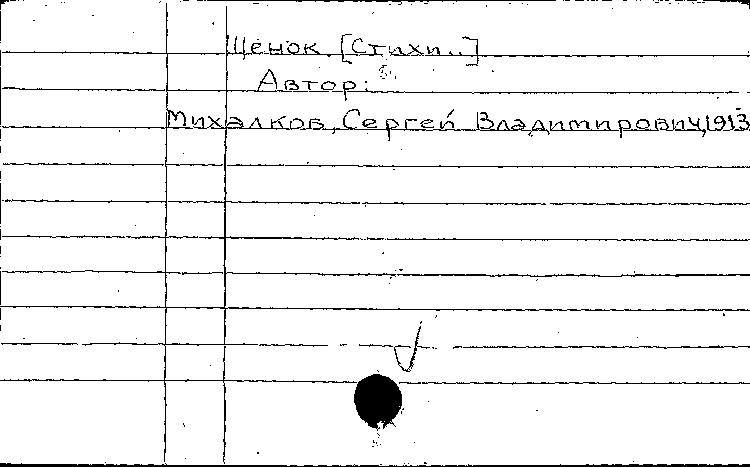 Щенок [Стихи..]
Автор:
Михалков, Сергей Владимирович, 1913